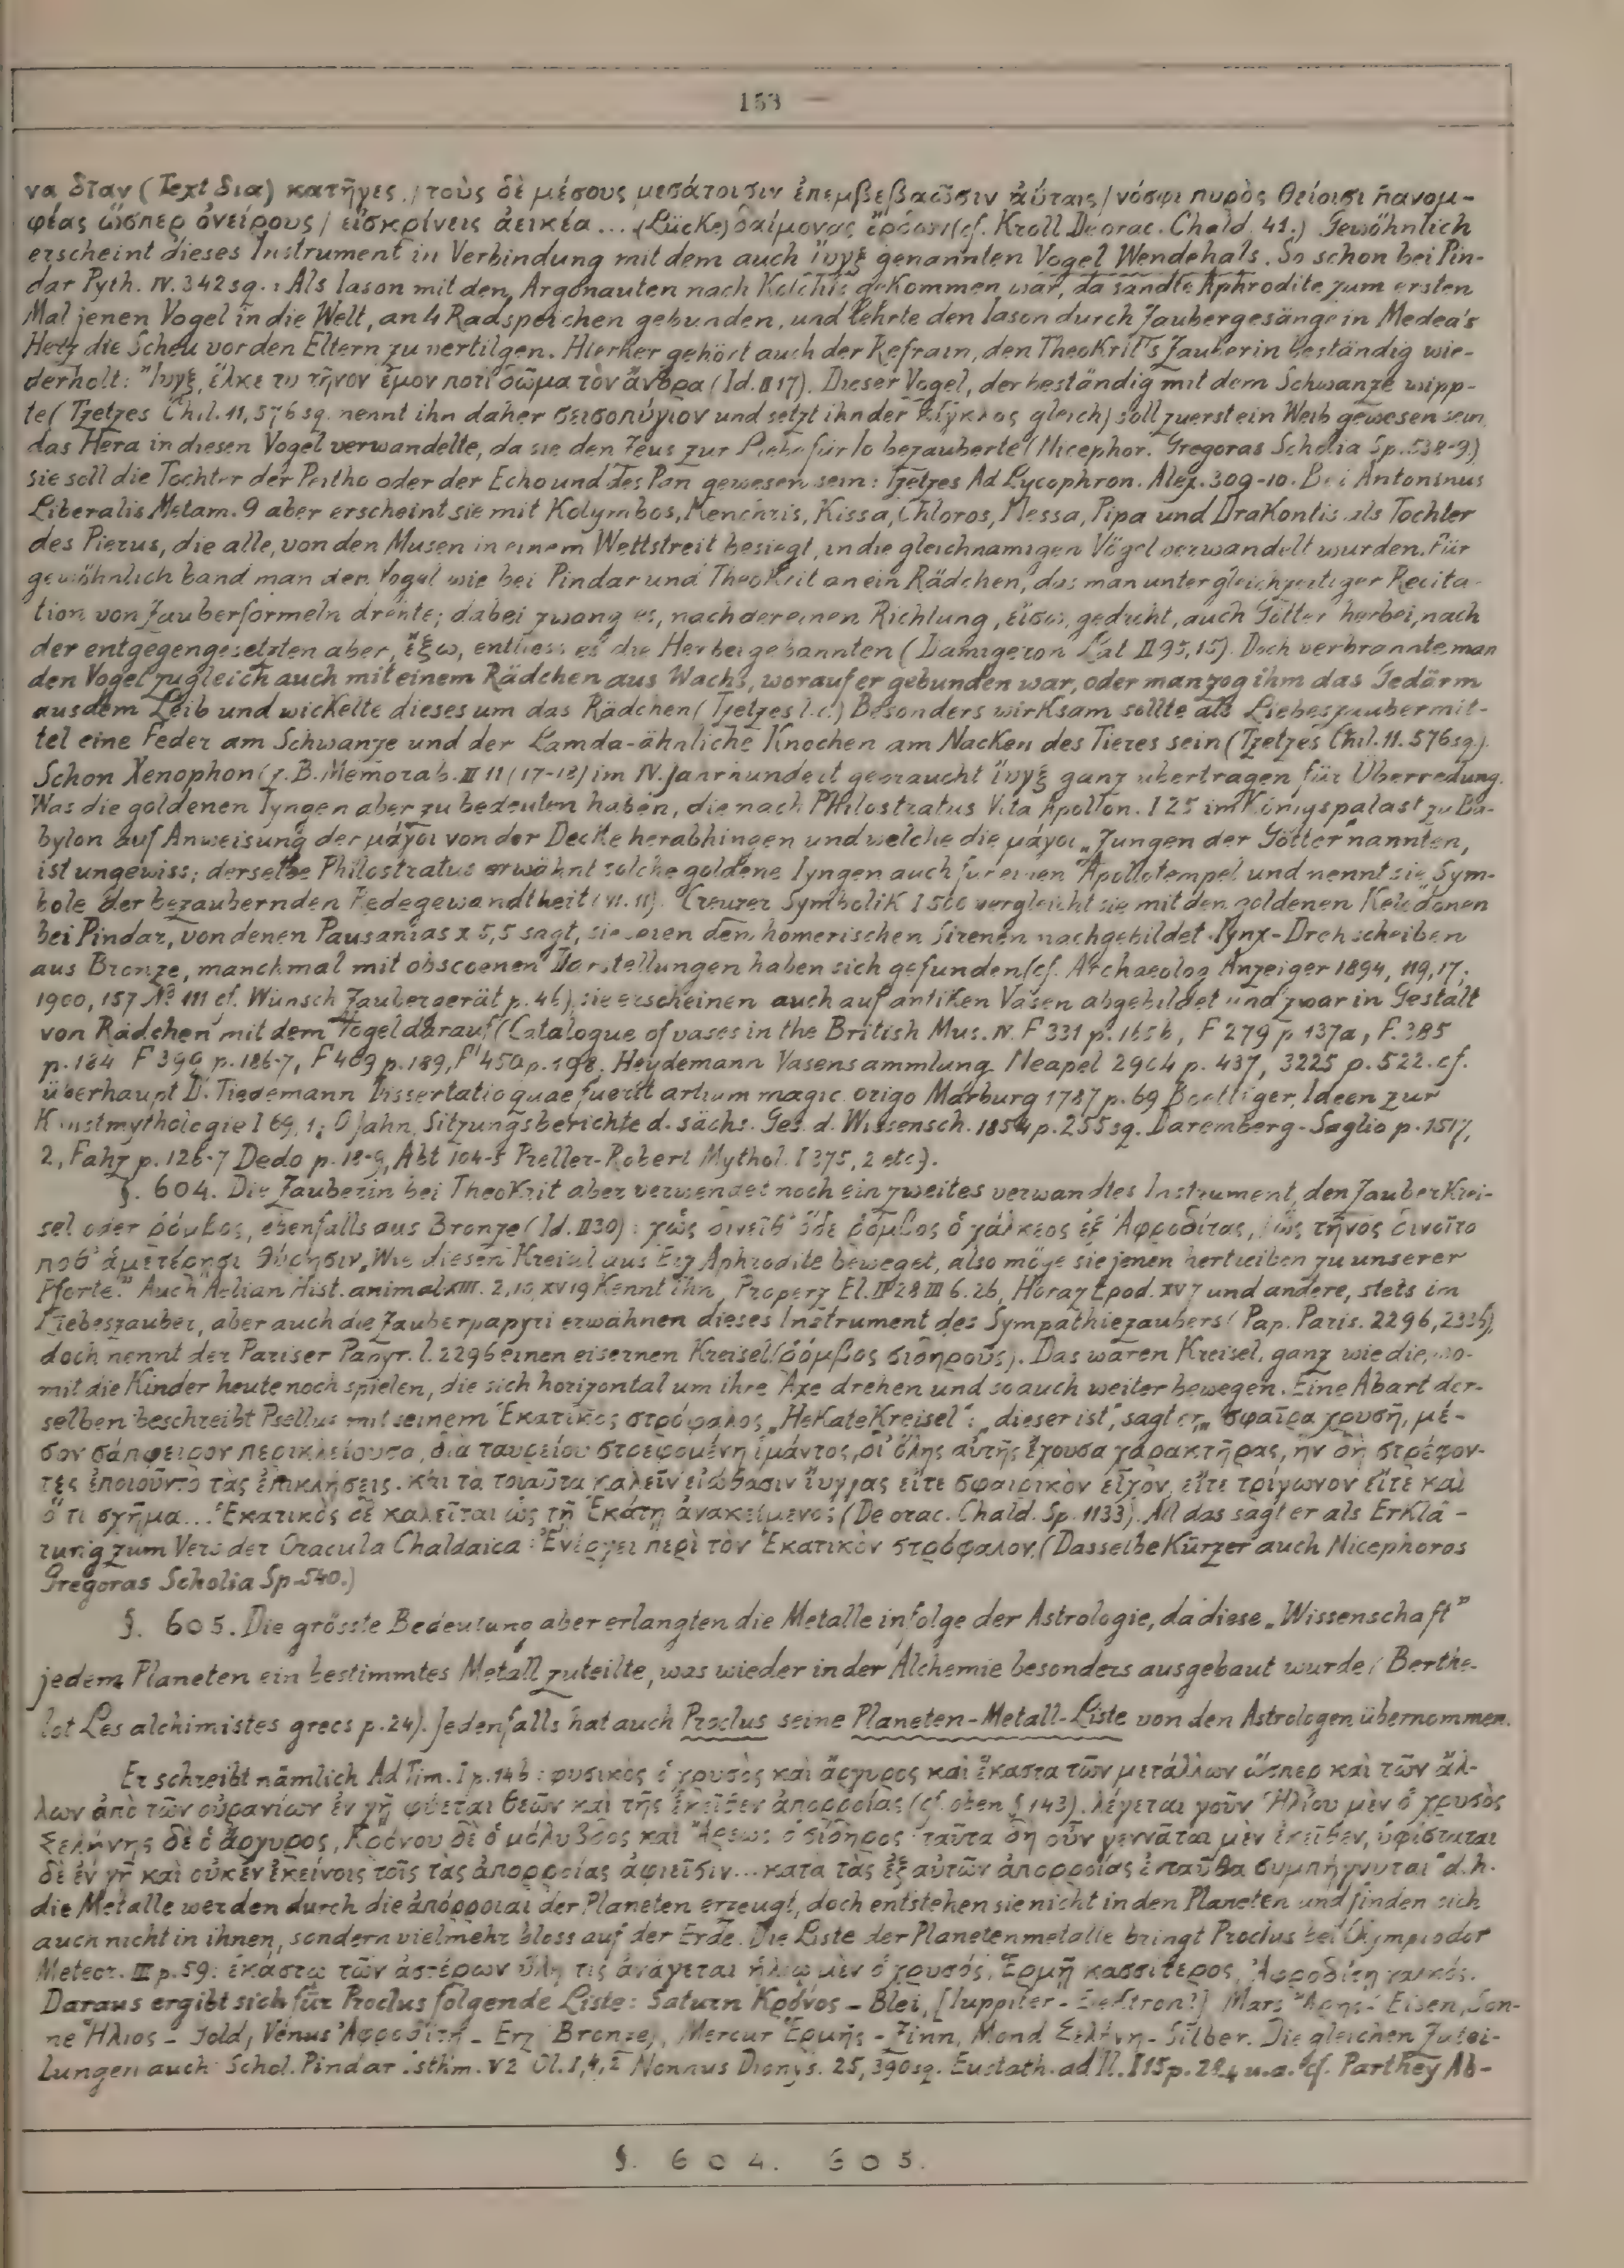 153
να ὅταν (Text δια) κατῆγες / τοὺς δὲ μέσους μεσάτοισιν ἐπεμβεβαῶσιν ἀύταις / νόσφι πυρὸς θείοισι πανομ-
φέας ὥσπερ ὀνείρους / εἰσκρίνεις ἀεικέα... (Lücke) δαίμονας (cf. Kroll De orac. Chald. 41.) Gewöhnlich
erscheint dieses Instrument in Verbindung mit dem auch ἴυγξ genannten Vogel Wendehals. So schon bei Pin-
dar Pyth. IV. 342 sq.: Als Iason mit den Argonauten nach Kolchis gekommen war, da sandte Aphrodite zum ersten
Mal jenen Vogel in die Welt, an 4 Radspeichen gebunden, und lehrte den Iason durch Zaubergesänge in Medea's
Herz die Scheu vor den Eltern zu vertilgen. Hierher gehört auch der Refrain, den Theokrit's Zauberin beständig wie-
derholt: Ἴυγξ, ἕλκε τὺ τῆνον ἐμον ποτὶ δῶμα τὸν ἄνδρα (Id. II 17). Dieser Vogel, der beständig mit dem Schwanze wipp-
te (Tzetzes Chil. 11, 576 sq. nennt ihn daher σεισοπύγιον und setzt ihn der κίγκλος gleich) soll zuerst ein Weib gewesen sein,
das Hera in diesen Vogel verwandelte, da sie den Zeus zur Liebe für Io bezauberte (Nicephor. Gregoras Scholia Sp. 538-9.)
sie soll die Tochter der Peitho oder der Echo und des Pan gewesen sein: Tzetzes Ad Lycophron. Alex. 309-10. Bei Antoninus
Liberalis Metam. 9 aber erscheint sie mit Kolymbos, Kenchris, Kissa, Chloros, Nessa, Pipo und Drakontis als Tochter
des Pierus, die alle, von den Musen in einem Wettstreit besiegt, in die gleichnamigen Vögel verwandelt wurden. Für
gewöhnlich band man den Vogel wie bei Pindar und Theokrit an ein Rädchen, das man unter gleichzeitiger Recita-
tion von Zauberformeln drehte; dabei zwang es, nach der einen Richtung, εἴσω, gedreht, auch Götter herbei, nach
der entgegengesetzten aber, ἔξω, entliess es die Herbeigebannten (Damigeron Lat. II 95, 15). Doch verbrannte man
den Vogel zugleich auch mit einem Rädchen aus Wachs, worauf er gebunden war, oder man zog ihm das Gedärm
aus dem Leib und wickelte dieses um das Rädchen (Tzetzes l.c.) Besonders wirksam sollte als Liebeszaubermit-
tel eine Feder am Schwanze und der Lamda-ähnliche Knochen am Nacken des Tieres sein (Tzetzes Chil. 11. 576 sq.).
Schon Xenophon (z.B. Memorab. III 11 (17-18) im IV. Jahrhundert gebraucht ἴυγξ ganz übertragen für Überredung.
Was die goldenen Iyngen aber zu bedeuten haben, die nach Philostratus Vita Apollon. I 25 im Königspalast zu Ba-
bylon auf Anweisung der μάγοι von der Decke herabhingen und welche die μάγοι „Zungen der Götter" nannten,
ist ungewiss; derselbe Philostratus erwähnt solche goldene Iyngen auch für einen Apollotempel und nennt sie Sym-
bole der bezaubernden Redegewandtheit (VI. 11). Creuzer Symbolik I 500 vergleicht sie mit den goldenen Keledonen
bei Pindar, von denen Pausanias X 5,5 sagt, sie seien den homerischen Sirenen nachgebildet. Iynx-Drehscheiben
aus Bronze, manchmal mit obscoenen Darstellungen haben sich gefunden (cf. Archaeolog. Anzeiger 1894, 119, 17;
1900, 157 No 111 cf. Wünsch Zaubergerät p. 46) sie erscheinen auch auf antiken Vasen abgebildet und zwar in Gestalt
von Rädchen mit dem Vogel darauf (Catalogue of vases in the British Mus. IV. F 331 p. 165b, F 279 p 137a, F. 385
p. 184 F 399 p. 186-7, F 409 p. 189, F 450 p. 198, Heydemann Vasensammlung Neapel 2904 p. 437, 3225 p. 522. cf.
überhaupt D. Tiedemann Dissertatio quae fuerit artium magic. origo Marburg 1787 p. 69 Boettiger, Ideen zur
Kunstmythologie I 69, 1; O Jahn, Sitzungsberichte d. sächs. Ges. d. Wissensch. 1854 p. 255 sq. Daremberg-Saglio p. 1517,
2, Fahz p. 126-7 Dedo p. 18-9, Abt 104-5 Preller-Robert Mythol. I 375, 2 etc.).
§. 604. Die Zauberin bei Theokrit aber verwendet noch ein zweites verwandtes Instrument, den Zauberkrei-
sel oder ῥόμβος, ebenfalls aus Bronze (Id. II 30): χὡς δινεῖθ' ὅδε ῥόμβος ὁ χάλκεος ἐξ Ἀφροδίτας, / ὣς τῆνος δινοῖτο
ποθ' ἁμετέρῃσι θύρῃσιν „Wie diesen Kreisel aus Erz Aphrodite beweget, also möge sie jenen hertreiben zu unserer
Pforte." Auch Aelian Hist. animal XIII. 2, 10, XV 19 kennt ihn, Properz El. II 28 III 6. 26, Horaz Epod. XV 7 und andere, stets im
Liebeszauber, aber auch die Zauberpapyri erwähnen dieses Instrument des Sympathiezaubers (Pap. Paris. 2296, 2336),
doch nennt der Pariser Papyr. l. 2296 einen eisernen Kreisel (ῥόμβος σιδηροῦς). Das waren Kreisel, ganz wie die, wo-
mit die Kinder heute noch spielen, die sich horizontal um ihre Axe drehen und so auch weiter bewegen. Eine Abart der-
selben beschreibt Psellus mit seinem Ἑκατικὸς στρόφαλος „HekateKreisel": „dieser ist", sagt er, „σφαῖρα χρυσῆ, μέ-
σον σάπφειρον περικλείουσα, διὰ ταυρείου στρεφομένη ἱμάντος, δι' ὅλης αὐτῆς ἔχουσα χαρακτῆρας, ἣν δὴ στρέφον-
τες ἐποιοῦντο τὰς ἐπικλήσεις. Καὶ τὰ τοιαῦτα καλεῖν εἰώθασιν ἴυγγας εἴτε σφαιρικὸν εἶχον, εἴτε τρίγωνον εἴτε καὶ
ὅ τι σχῆμα... Ἑκατικὸς δὲ καλεῖται ὡς τῇ Ἑκάτῃ ἀνακείμενος (De orac. Chald. Sp. 1133). All das sagt er als Erklä-
rung zum Vers der Oracula Chaldaica: Ἐνέργει περὶ τὸν Ἑκατικὸν στρόφαλον. (Dasselbe Kürzer auch Nicephoros
Gregoras Scholia Sp. 540.)
§. 605. Die grösste Bedeutung aber erlangten die Metalle infolge der Astrologie, da diese „Wissenschaft"
jedem Planeten ein bestimmtes Metall zuteilte, was wieder in der Alchemie besonders ausgebaut wurde (Berthe-
lot Les alchimistes grecs p. 24). Jedenfalls hat auch Proclus seine Planeten-Metall-Liste von den Astrologen übernommen.
Er schreibt nämlich Ad Tim. I p. 14b: φυσικὸς ὁ χρυσὸς καὶ ἄργυρος καὶ ἕκαστα τῶν μετάλλων ὥσπερ καὶ τῶν ἄλ-
λων ἀπὸ τῶν οὐρανίων ἐν γῇ φύεται θεῶν καὶ τῆς ἐκεῖθεν ἀπορροίας (cf. oben § 143). λέγεται γοῦν Ἡλίου μὲν ὁ χρυσὸς
Σελήνης δὲ ὁ ἄργυρος, Κρόνου δὲ ὁ μόλυβδος καὶ Ἄρεως ὁ σίδηρος· ταῦτα δὴ οὖν γεννᾶται μὲν ἐκεῖθεν, ὑφίσταται
δὲ ἐν γῇ καὶ οὐκ ἐν ἐκείνοις τοῖς τὰς ἀπορροίας ἀφιεῖσιν... κατὰ τὰς ἐξ αὐτῶν ἀπορροίας ἐνταῦθα συμπήγνυται" d.h.
die Metalle werden durch die ἀπόρροιαι der Planeten erzeugt, doch entstehen sie nicht in den Planeten und finden sich
auch nicht in ihnen, sondern vielmehr bloss auf der Erde. Die Liste der Planetenmetalle bringt Proclus bei Olympiodor
Meteor. III p. 59: ἑκάστῳ τῶν ἀστέρων ὕλη τις ἀνάγεται ἡλίῳ μὲν ὁ χρυσός, Ἑρμῇ κασσίτερος, Ἀφροδίτῃ χαλκός.
Daraus ergibt sich für Proclus folgende Liste: Saturn Κρόνος - Blei, [Iuppiter - Elektron?] Mars Ἄρης - Eisen, Son-
ne Ἥλιος - Gold, Venus Ἀφροδίτη - Erz (Bronze), Mercur Ἑρμῆς - Zinn, Mond Σελήνη - Silber. Die gleichen Zutei-
lungen auch Schol. Pindar Isthm. V 2 Ol. 1, 4, Nonnus Dionys. 25, 390 sq. Eustath. ad Il. I 15 p. 24 u.a. cf. Parthey Ab-
§. 604. 605.